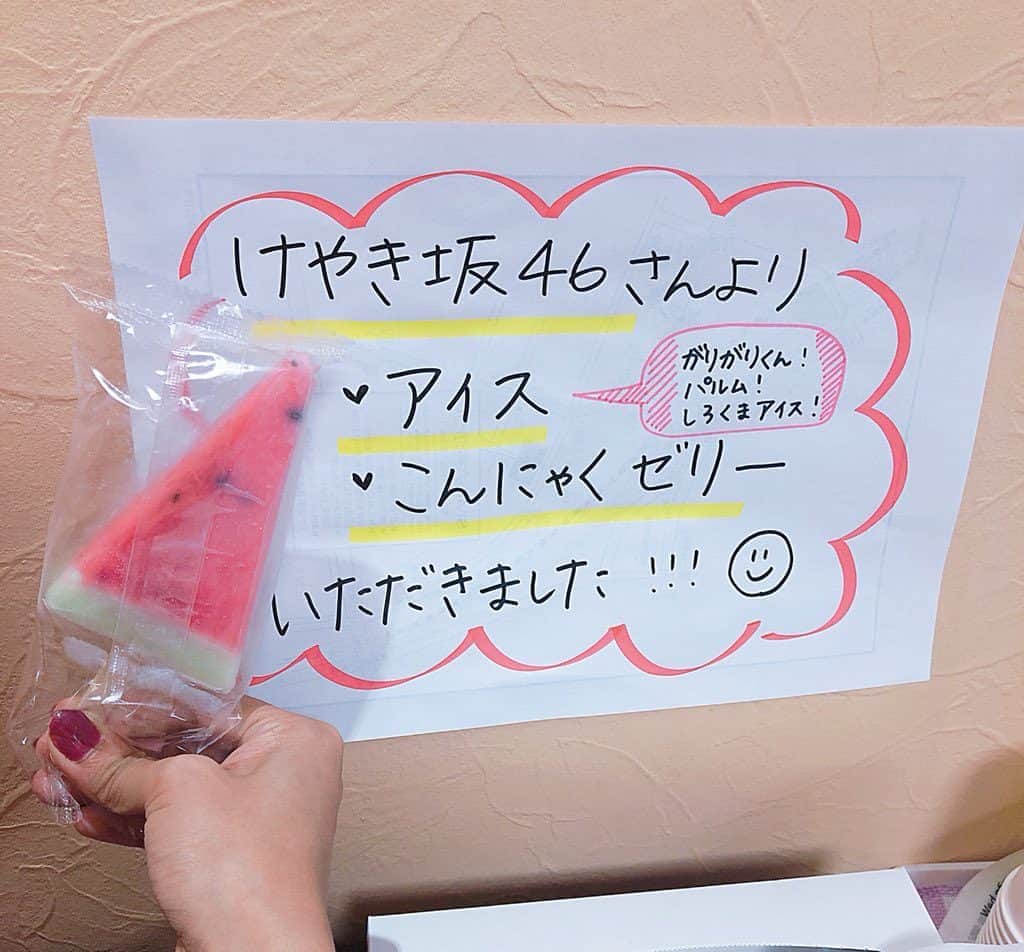 けやき坂46さんより
♥アイス
がりがりくん!
パルム!
しろくまアイス!
♥こんにゃくゼリー
いただきました!!!